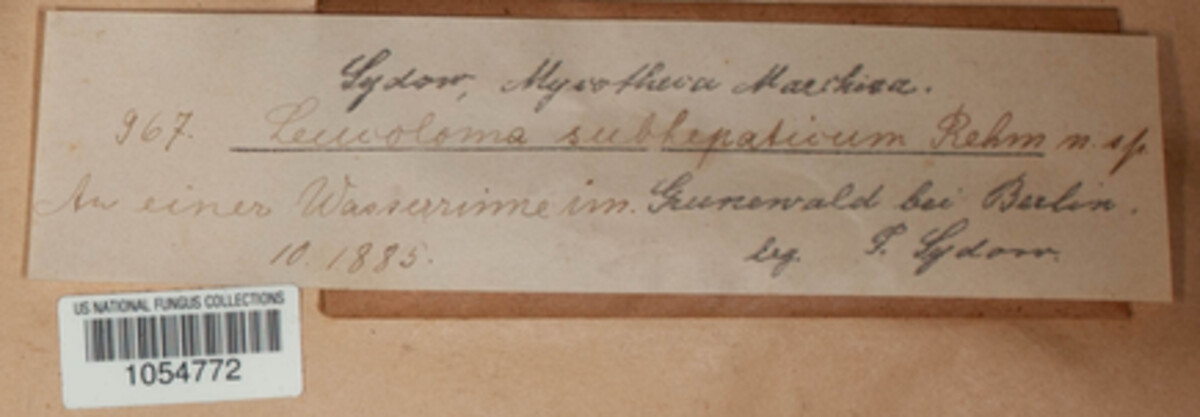 Sydow, Mycotheca Marchica.
967. Leucoloma subhepaticum Rehm n. sp.
An einer Wasserrinne im Grunewald bei Berlin.
10. 1885. leg. P. Sydow.
US NATIONAL FUNGUS COLLECTIONS
1054772